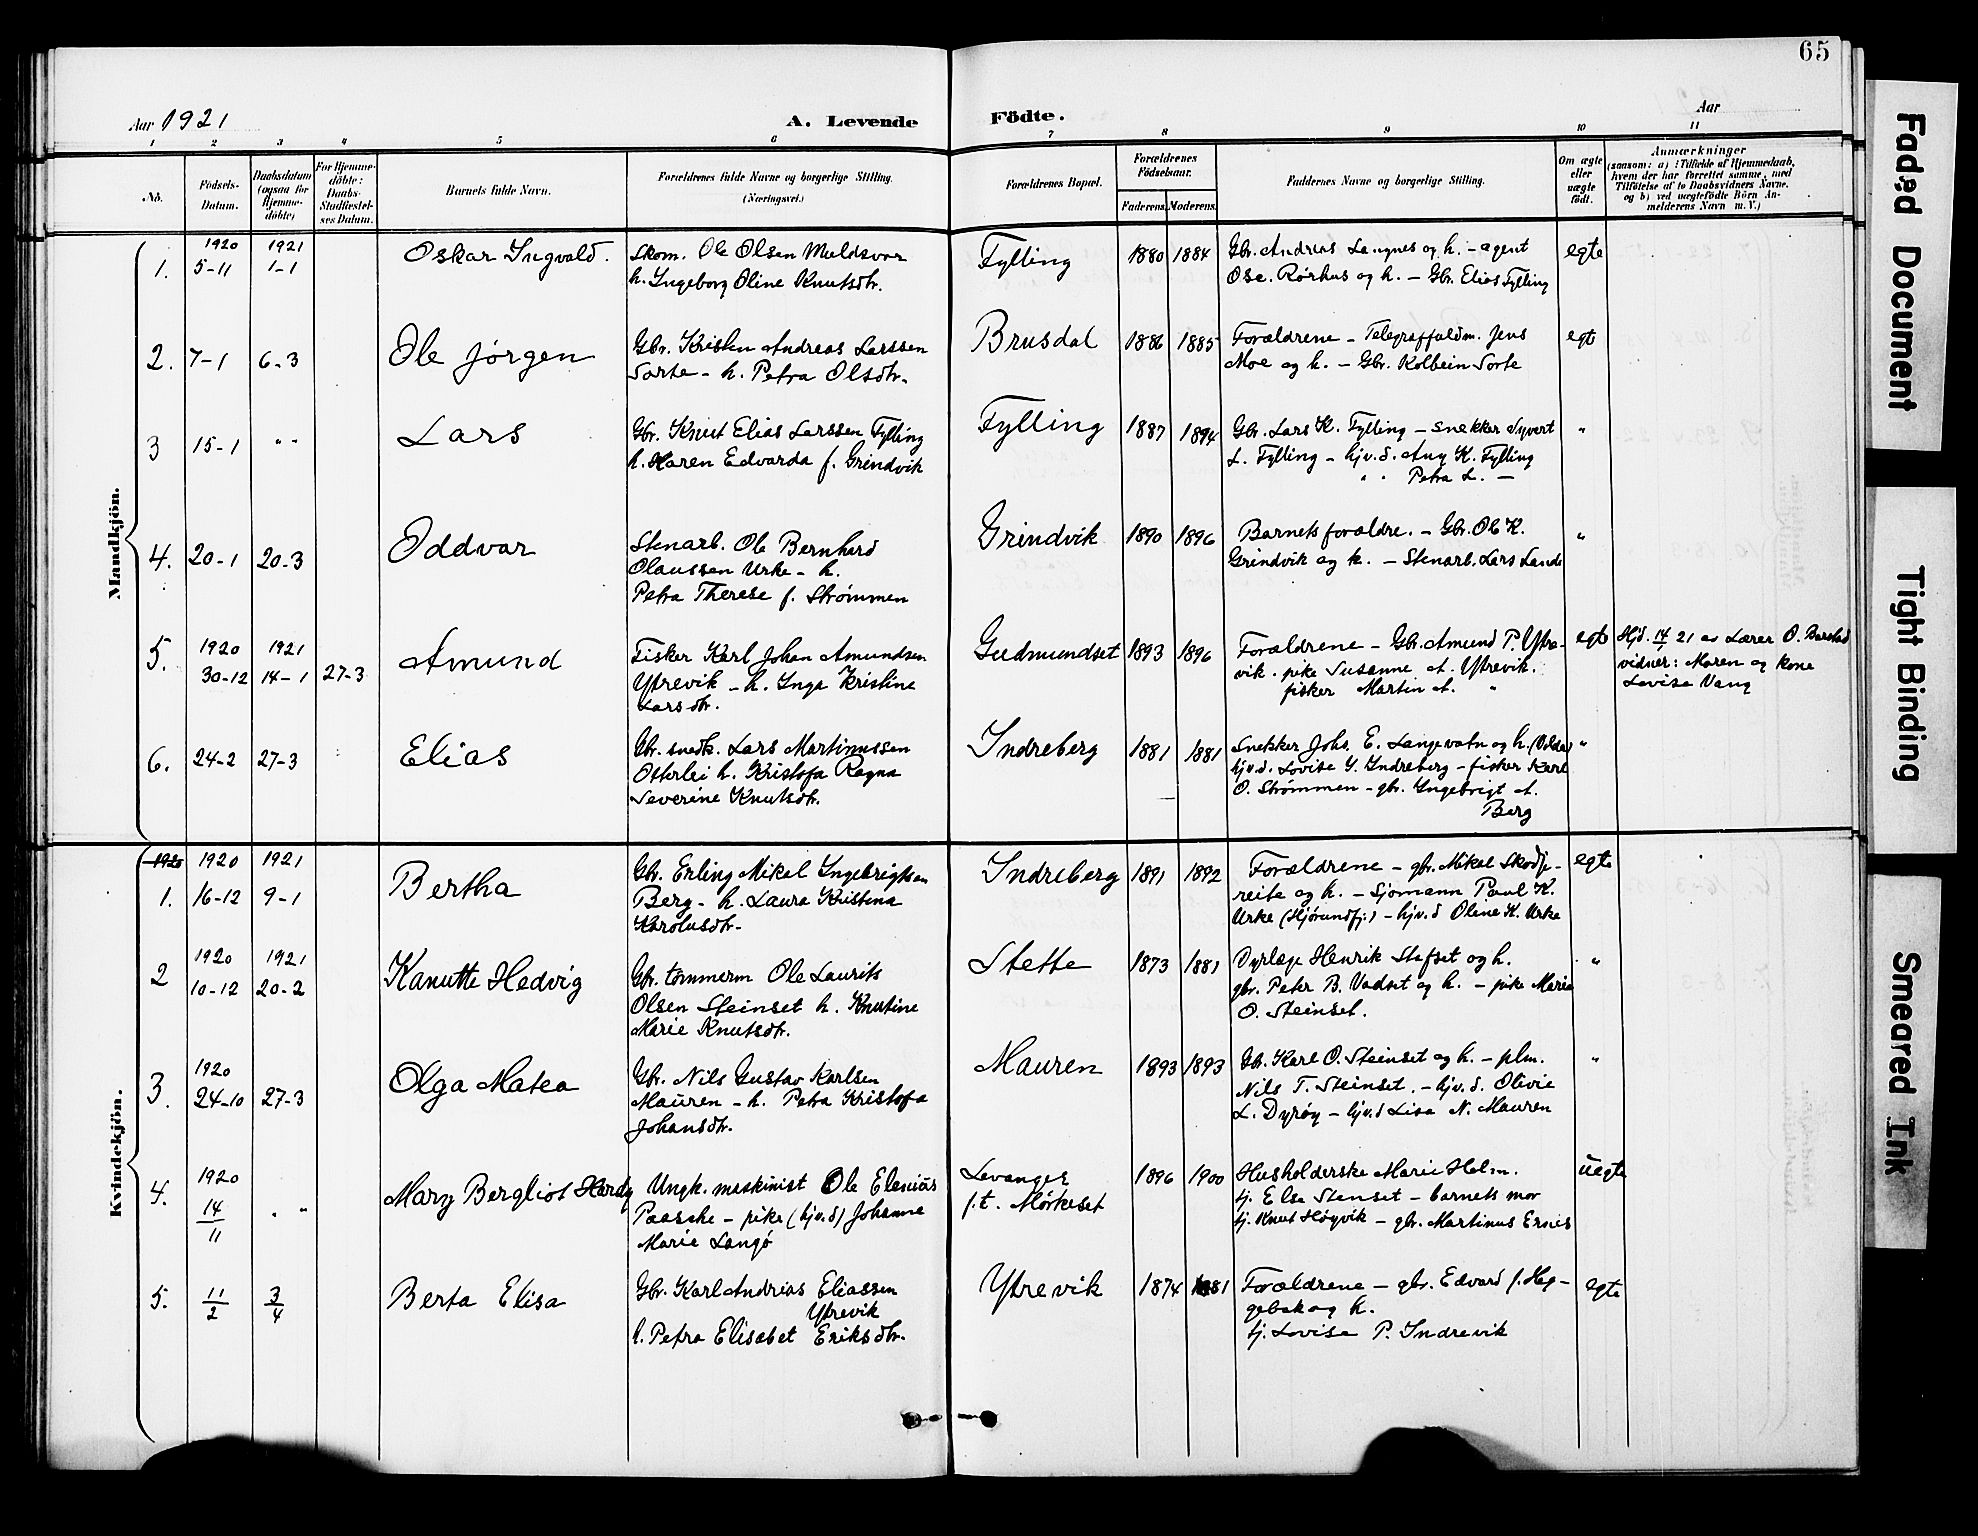 65
Aar 1921
A. Levende
Födte.
Aar
1 2 3 4 5 6 7 8 9 10 11
No.
Födsels-Datum.
Daabsdatum (ogsaa for Hjemmedöbte)
For Hjemmedöbte: Daabs-Stadfæstelses Datum.
Barnets fulde Navn.
Forældrenes fulde Navne og borgerlige Stilling.
(Næringsvei.)
Forældrenes Bopæl.
Forældrenes Fødselsaar.
Faderens. Moderens.
Faddernes Navne og borgerlige Stilling.
Om ægte eller uægte födt.
Anmærkninger
(saasom: a) i Tilfælde af Hjemmedaab, hvem der har forrettet samme, med Tilföielse af to Daabsvidners Navne, og b) ved uægtefödte Börn Anmelderens Navn m. V.)
Mandkjön.
1. 1920 5-11 1921 1-1 Oskar Ingvald.
Skom. Ole Olsen Muldsvor
h. Ingeborg Oline Knutsdtr.
Fylling 1880 1884
Gbr. Andreas Langnes og h. - agent
Ose. Rörhus og h. - Gbr. Elias Fylling
egte
2. 7-1 6-3 Ole Jørgen
Gbr. Kristen Andreas Larssen
Sorte - h. Petra Olsdtr.
Brusdal 1886 1885
Forældrene - Telegraffuldm. Jens
Moe og h. - Gbr. Kolbein Sorte
egte
3 15-1 " " Lars
Gbr. Knut Elias Larssen Fylling
h. Karen Edvarda f. Grindvik
Fylling 1887 1894
Gbr. Lars K. Fylling - snekker Syvert
L. Fylling - hjv.d. Any K. Fylling
" " Petra L. -
"
4. 20-1 20-3 Oddvar
Stenarb. Ole Bernhard
Olaussen Urke - h.
Petra Therese f. Strømmen
Grindvik 1890 1896
Barnets forældre. - Gbr. Ole K.
Grindvik og h. - Stenarb. Lars Lande
"
5. 1920 30-12 1921 14-1 27-3 Amund
Fisker Karl Johan Amundsen
Ytrevik - h. Inga Kristine
Larsdtr.
Gudmundset 1893 1896
Forældrene - Gbr. Amund P. Ytre-
vik. pike Susanne A. Ytrevik.
fisker Martin A. "
egte
Hjd. 14/1 21 av Lærer O. Barstad
vidner: Maren og kone
Lovise Vang
6. 24-2 27-3 Elias
Gbr. snedk. Lars Martinussen
Osterlei h. Kristofa Ragna
Severine Knutsdtr.
Indreberg 1881 1881
Snekker Johs. E. Langevatn og h. (Volda)
hjv.d. Lovise Y. Indreberg - fisker Karl
O. Strømmen - gbr. Ingebrigt A.
Berg
"
Kvindekjön.
1920
1. 1920 16-12 1921 9-1 Bertha
Gbr. Erling Mikal Ingebrigtsen
Berg - h. Laura Kristina
Karolusdtr.
Indreberg 1891 1892
Forældrene - gbr. Mikal Skodje-
reite og h. - Sjømann Paul K.
Urke (Hjørundfj.) - hjv.d Oline K. Urke
egte
2 1920 10-12 1921 20-2 Kanutte Hedvig
Gbr. tømmerm Ole Laurits
Olsen Steinset h. Knutine
Marie Knutsdtr.
Stette 1873 1881
Dyrlæge Henrik Stafset og h.
gbr. Peter B. Vadset og h. - pike Marie
O. Steinset.
"
3. 1920 24-10 27-3 Olga Matea
Gbr. Nils Gustav Karlsen
Mauren - h. Petra Kristofa
Johansdtr.
Mauren 1893 1893
Gbr. Karl O. Steinset og h. - plm.
Nils T. Steinset. - hjv.d. Olivie
L. Dyrøy - hjv.d Lisa N. Mauren
"
4. 1920 14/11 " " Mary Bergliot Hardy
Ungk. maskinist Ole Elenius
Paasche - pike (hjv.d) Johanne
Marie Langø
Levanger
f.t. Mørkeset
1896 1900
Husholderske Marie Holm.
tj. Else Stenset - barnets mor
tj. Knut Høgvik - gbr. Martinus Ernes
uegte
5. 11/2 3/4 Berta Elisa
Gbr. Karl Andreas Eliassen
Ytrevik
h. Petra Elisabet Eriksdtr.
Ytrevik 1874 1881
Forældrene - gbr. Edvard J. Hag-
gebak og h.
tj. Lovise P. Indrevik
egte
Faded Document
Tight Binding
Smeared Ink